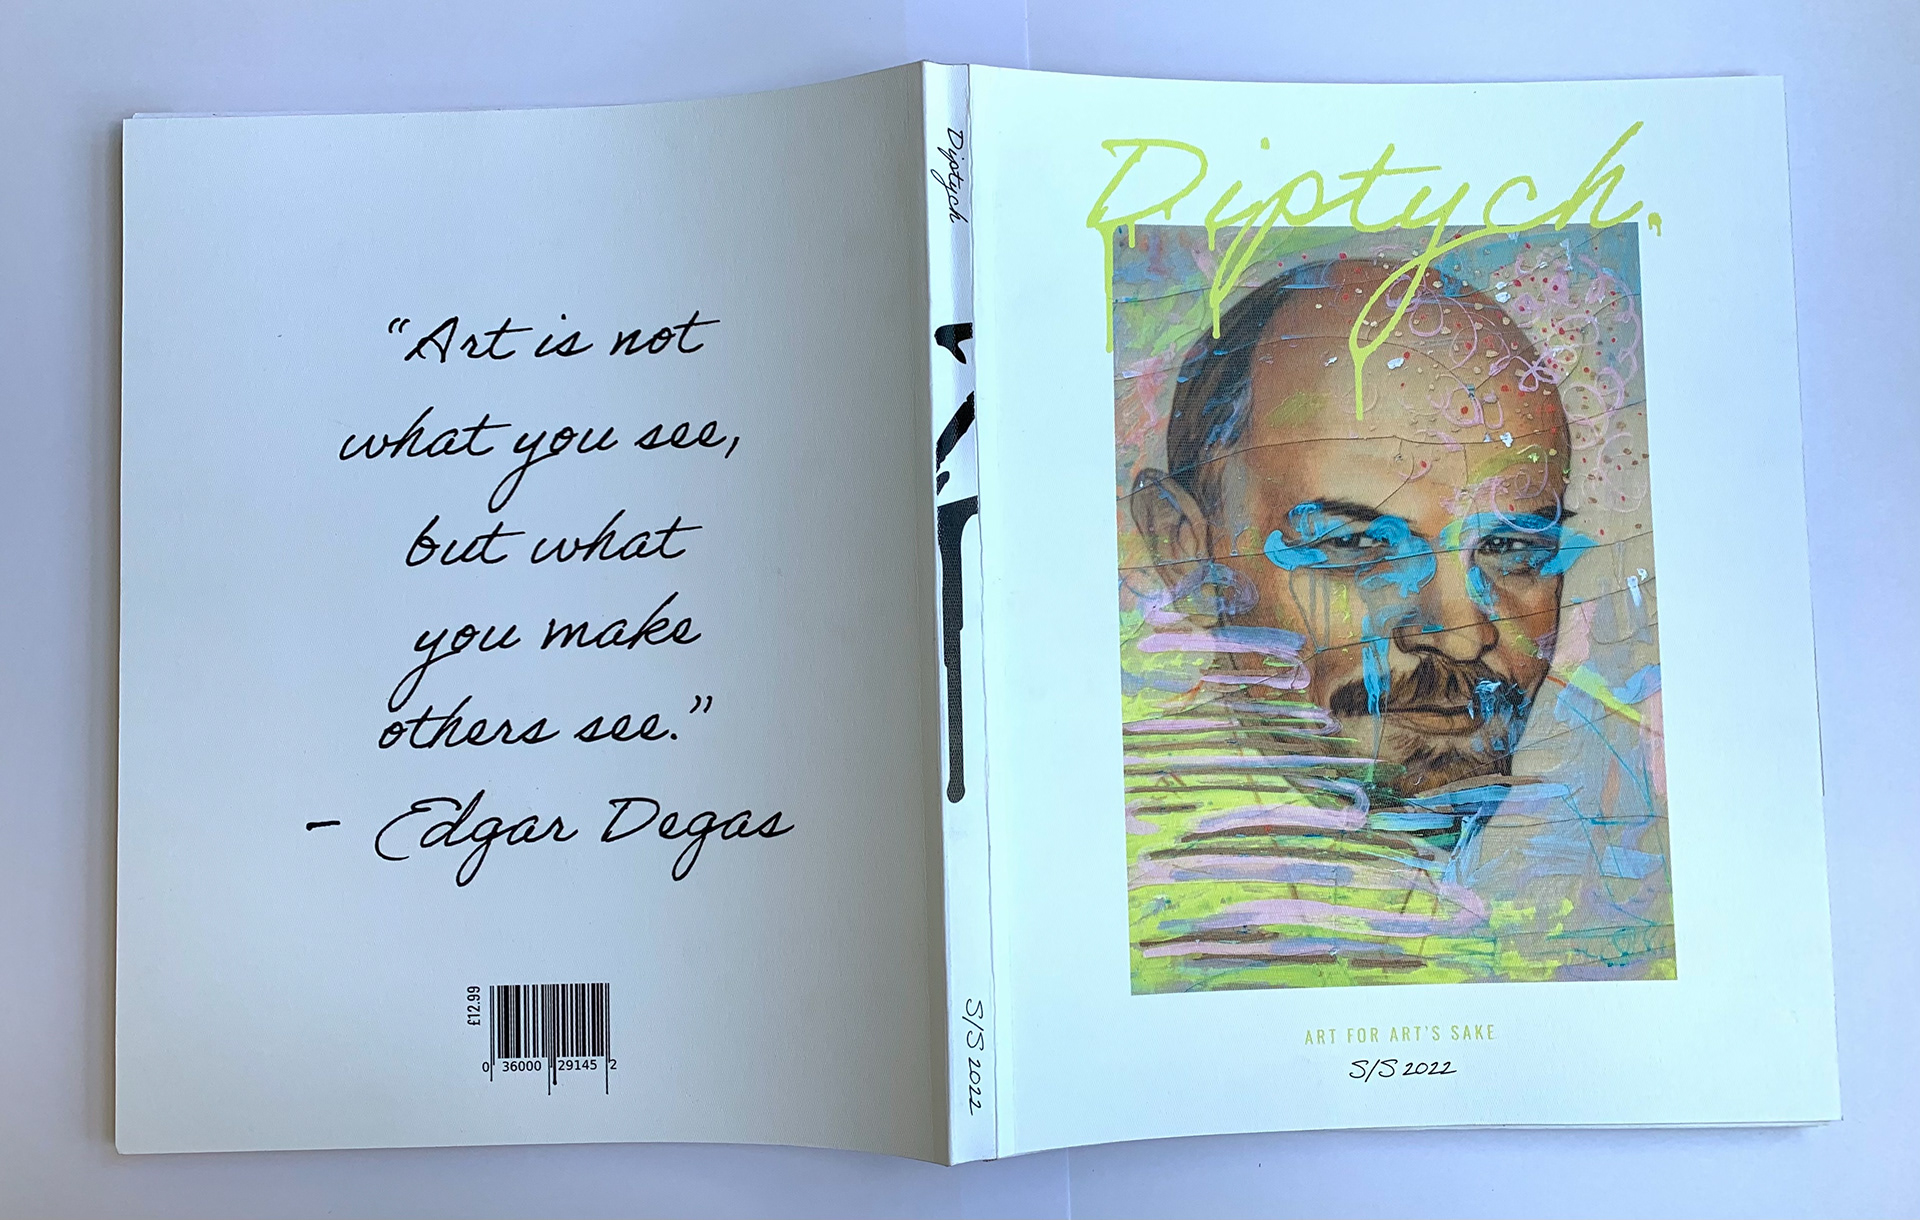 “Art is not
what you see,
but what
you make
others see.”
- Edgar Degas
£12.99
0 36000 29145 2
Diptych
S/S 2022
Diptych.
ART FOR ART'S SAKE
S/S 2022